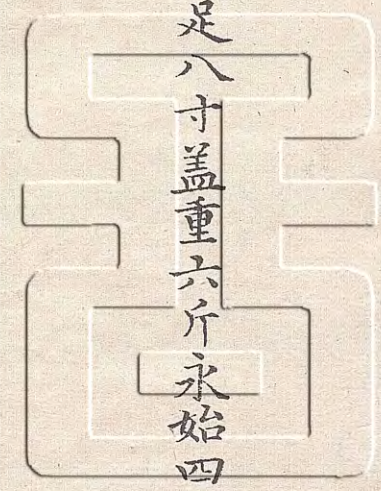 足八寸盖重六斤永始四